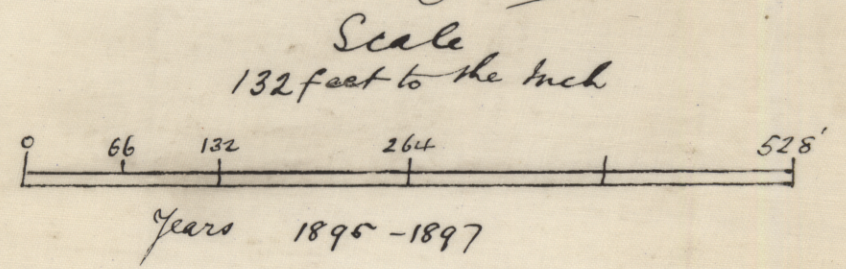 Scale
132 feet to the Inch
0 66 132 264 528'
Years 1895-1897